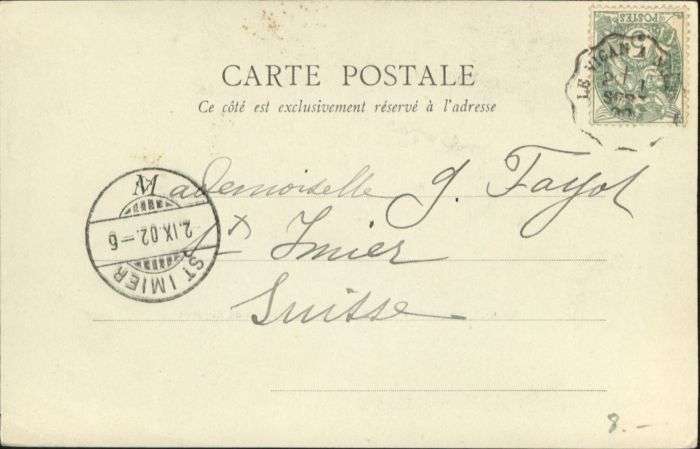 5
POSTES
LE VIGAN A
CARTE POSTALE
Ce côté est exclusivement réservé à l'adresse
Mademoiselle G. Fayot
St Imier
Suisse
2.IX.02.–6
ST IMIER
8.–